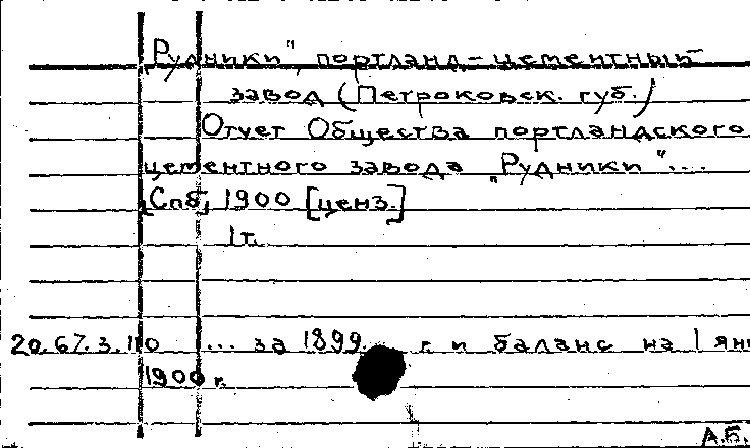 „Рудники", портланд-цементный
завод (Петроковск. губ.)
Отчет Общества портландского
цементного завода „Рудники"...
[Спб], 1900 [ценз.]
1т.
20.67.3.110 ... за 1899... г. и баланс на 1 янв
1900 г.
А.Б.